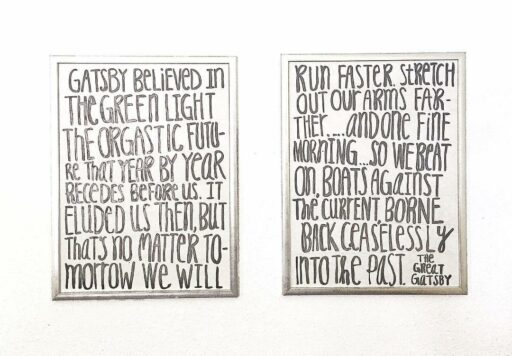 GATSBY BELIEVED IN
THE GREEN LIGHT
THE ORGASTIC FUTU-
RE THAT YEAR BY YEAR
RECEDES BEFORE US. IT
ELUDED US THEN, BUT
THAT'S NO MATTER TO-
MORROW WE WILL
RUN FASTER. STRETCH
OUT OUR ARMS FAR-
THER.... AND ONE FINE
MORNING... SO WE BEAT
ON, BOATS AGAINST
THE CURRENT, BORNE
BACK CEASELESSLY
INTO THE PAST.
THE
GREAT
GATSBY